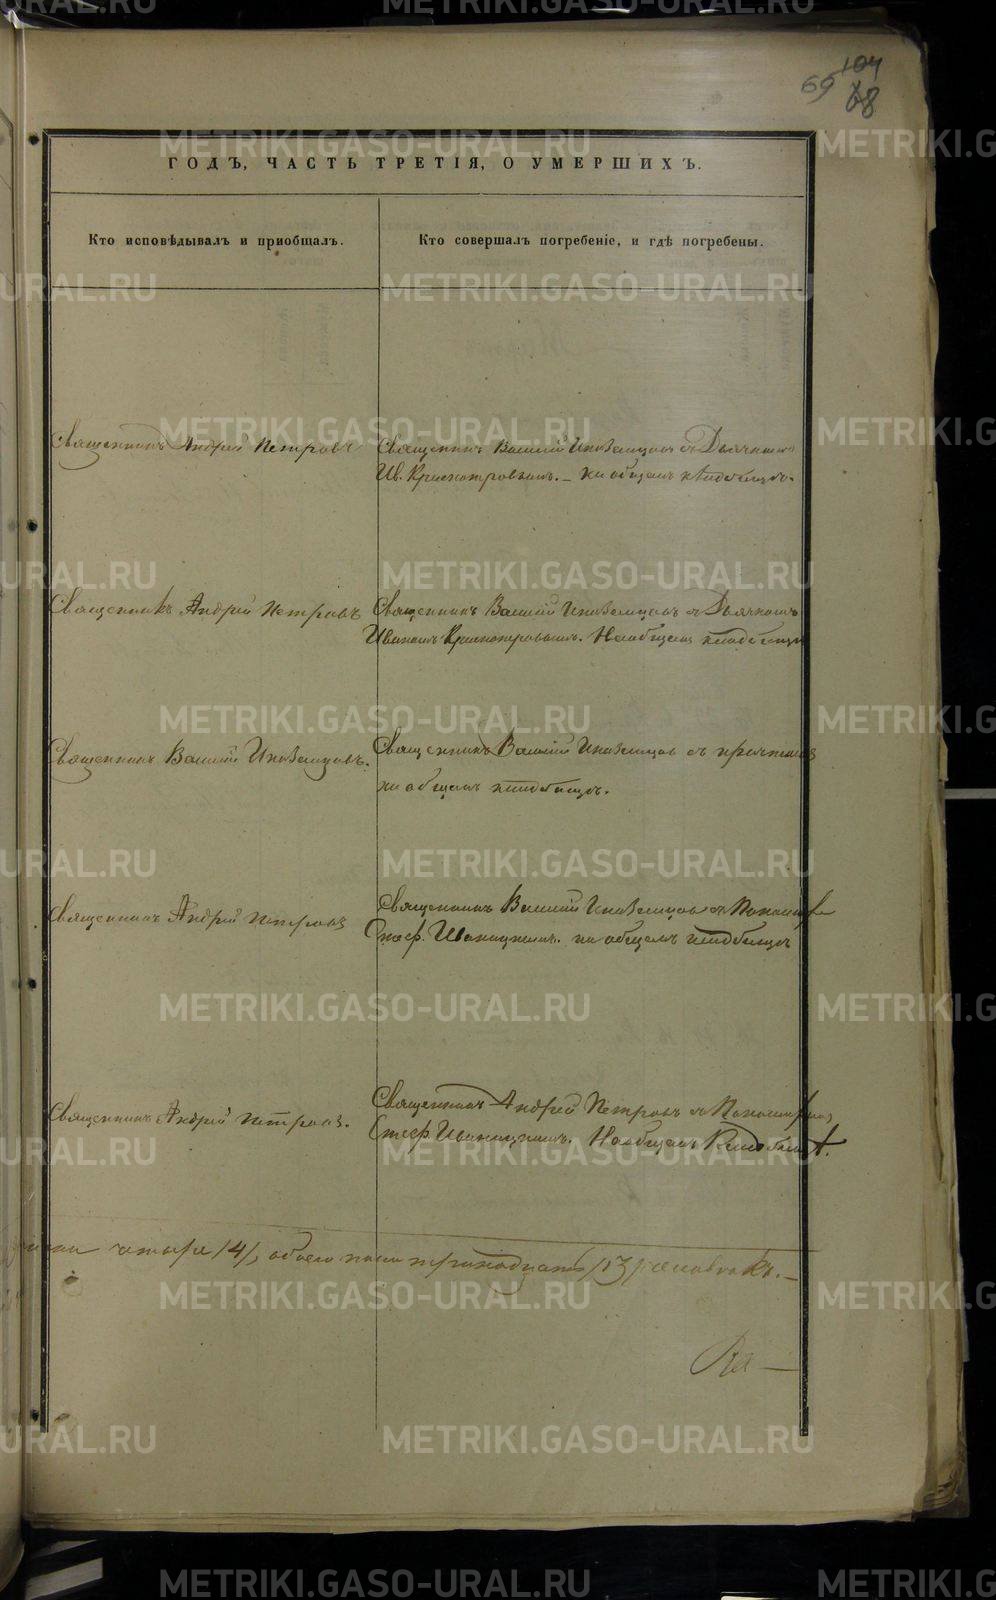 69 104
68
ГОДЪ, ЧАСТЬ ТРЕТІЯ, О УМЕРШИХЪ.
Кто исповѣдывалъ и пріобщалъ.
Кто совершалъ погребеніе, и гдѣ погребены.
Священникъ Андрей Петровъ
Священникъ Василій Иноземцовъ съ Дьячкомъ
Ив. Краснопѣровымъ. – на общемъ кладбищѣ.
Священникъ Андрей Петровъ
Священникъ Василій Иноземцовъ съ Дьячкомъ
Иваномъ Краснопѣровымъ. На общемъ кладбищѣ
Священникъ Василій Иноземцовъ.
Священникъ Василій Иноземцовъ съ причтомъ
на общемъ кладбищѣ.
Священникъ Андрей Петровъ
Священникъ Василій Иноземцовъ съ Пономаремъ
Стеф. Иваницкимъ. на общемъ кладбищѣ
Священникъ Андрей Петровъ.
Священникъ Андрей Петровъ съ Пономаремъ
Стеф. Иваницкимъ. На общемъ Кладбищѣ.
четыре /4/, обоего пола тринадцать /13/ человѣкъ. –
METRIKI.GASO-URAL.RU